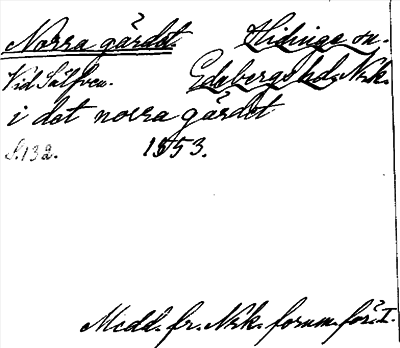 Norra gärdet. Hidinge sn.
Vid Sälfven. Edsbergs hd. Nrk.
i det norra gärdet
S. 132. 1553.
Medd. fr. Nrk. fornm. för. I.